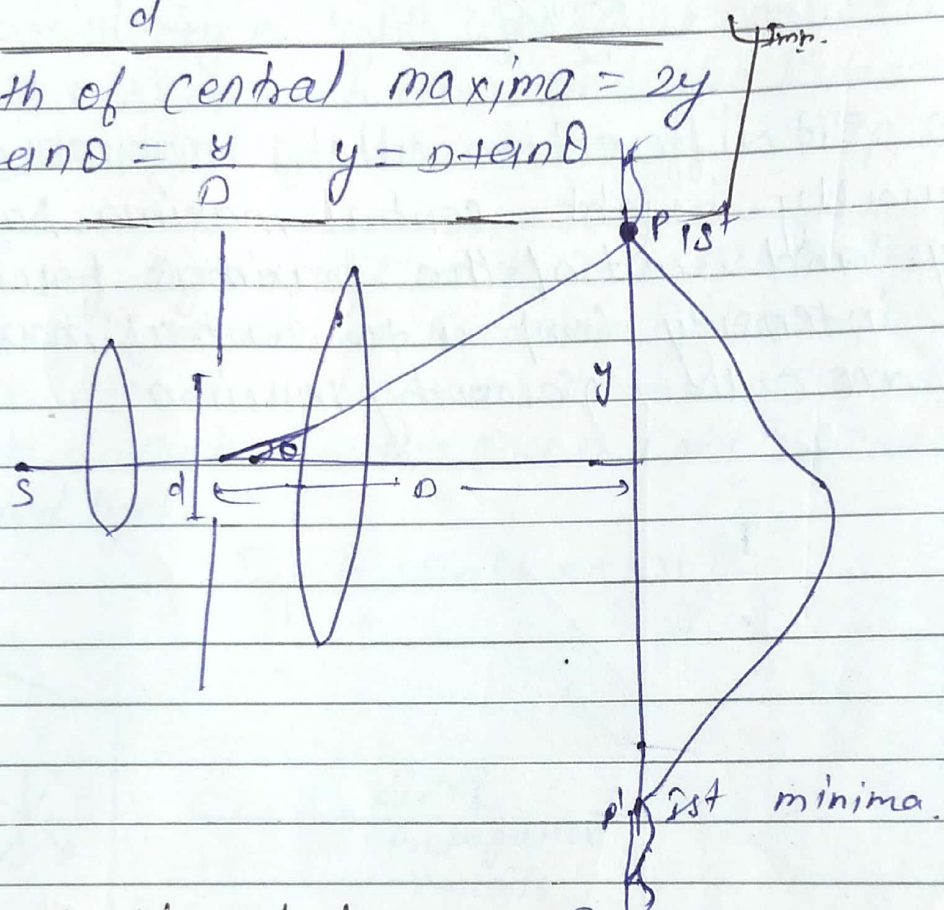 d
Imp.
th of central maxima = 2y
anθ = y/D y = Dtanθ
P Ist
y
θ
S d D
P' Ist minima.